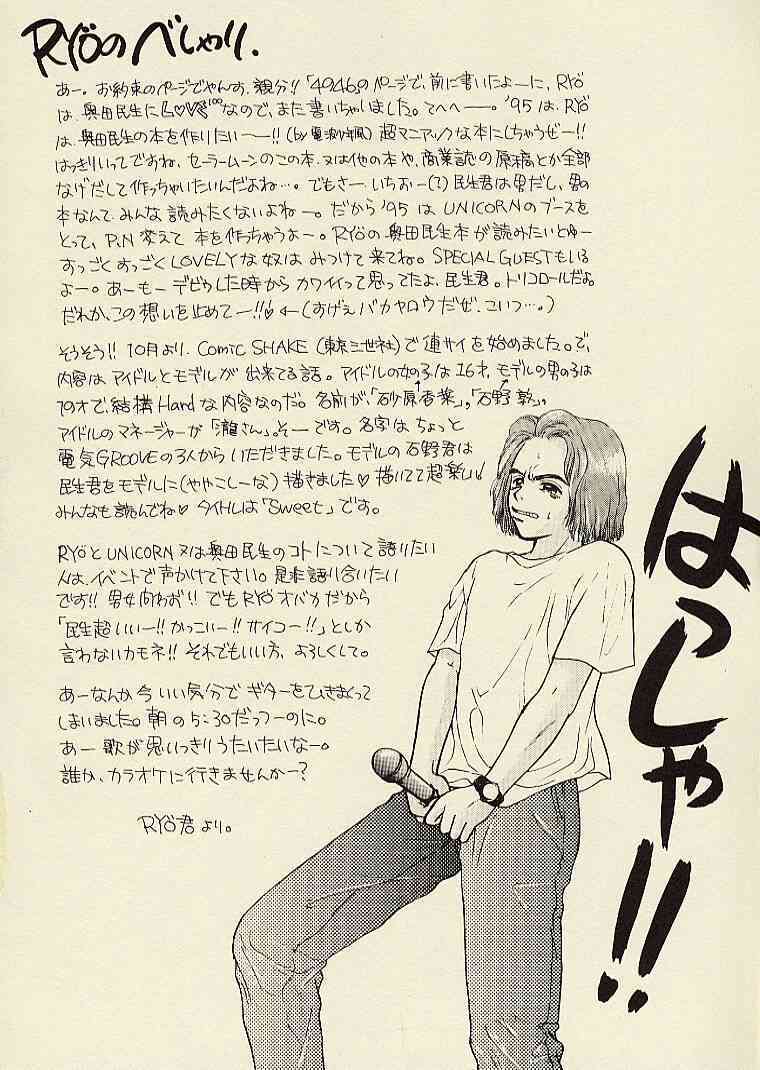 RYÖのべしゃり.
あー。お約束のページでやんす、親分!!「4946」のページで、前に書いたよーに、RYÖ
は、奥田民生にLOVE¹⁰⁰なので、また書いちゃいました。てへへー。'95は、RYÖ
は、奥田民生の本を作りたいー!!(by電波少年風)超マニアックな本にしちゃうぜー!!
はっきりいってですね、セーラームーンのこの本、又は他の本や、商業誌の原稿とか全部
なげだして作っちゃいたいんだよね…。でもさー、いちおー(?)民生君は男だし、男の
本なんて、みんな読みたくないよねー。だから'95はUNICORNのブースを
とって、P.N変えて本を作っちゃうよー。RYÖの奥田民生本が読みたいとゆー
すっごくすっごくLOVELYな奴は、みつけて来てね。SPECIAL GUESTもいる
よー。あーもーデビゥした時からカワイイって思ってたよ、民生君。トリコロールだよ。
だれか、この想いを止めてー!!♡←(すげぇバカヤロウだぜ、こいつ…。)
そうそう!!10月より、Comic SHAKE(東京三世社)で連サイを始めました。で、
内容はアイドルとモデルが出来てる話。アイドルの女の子は16才、モデルの男の子は
19才で、結構Hardな内容なのだ。名前が、「砂原香菜」、「石野敦」、
アイドルのマネージャーが「瀧さん」。そーです。名字はちょっと
電気GROOVEの3人からいただきました。モデルの石野君は
民生君をモデルに(ややこしーな)描きました♡描いてて超楽しい!
みんなも読んでね♡タイトルは「Sweet」です。
RYÖとUNICORN又は奥田民生のコトについて語りたい
人は、イベントで声かけて下さい。是非語り合いたい
です!!男女問わず!!でもRYÖオバカだから
「民生超いいー!!かっこいー!!サイコー!!」としか
言わないカモネ!!それでもいい方、よろしくして。
あーなんか今いい気分でギターをひきまくって
しまいました。朝の5:30だっつーのに。
あー歌が思いっきりうたいたいなー。
誰か、カラオケに行きませんかー?
RYÖ君より。
はっしゃ!!